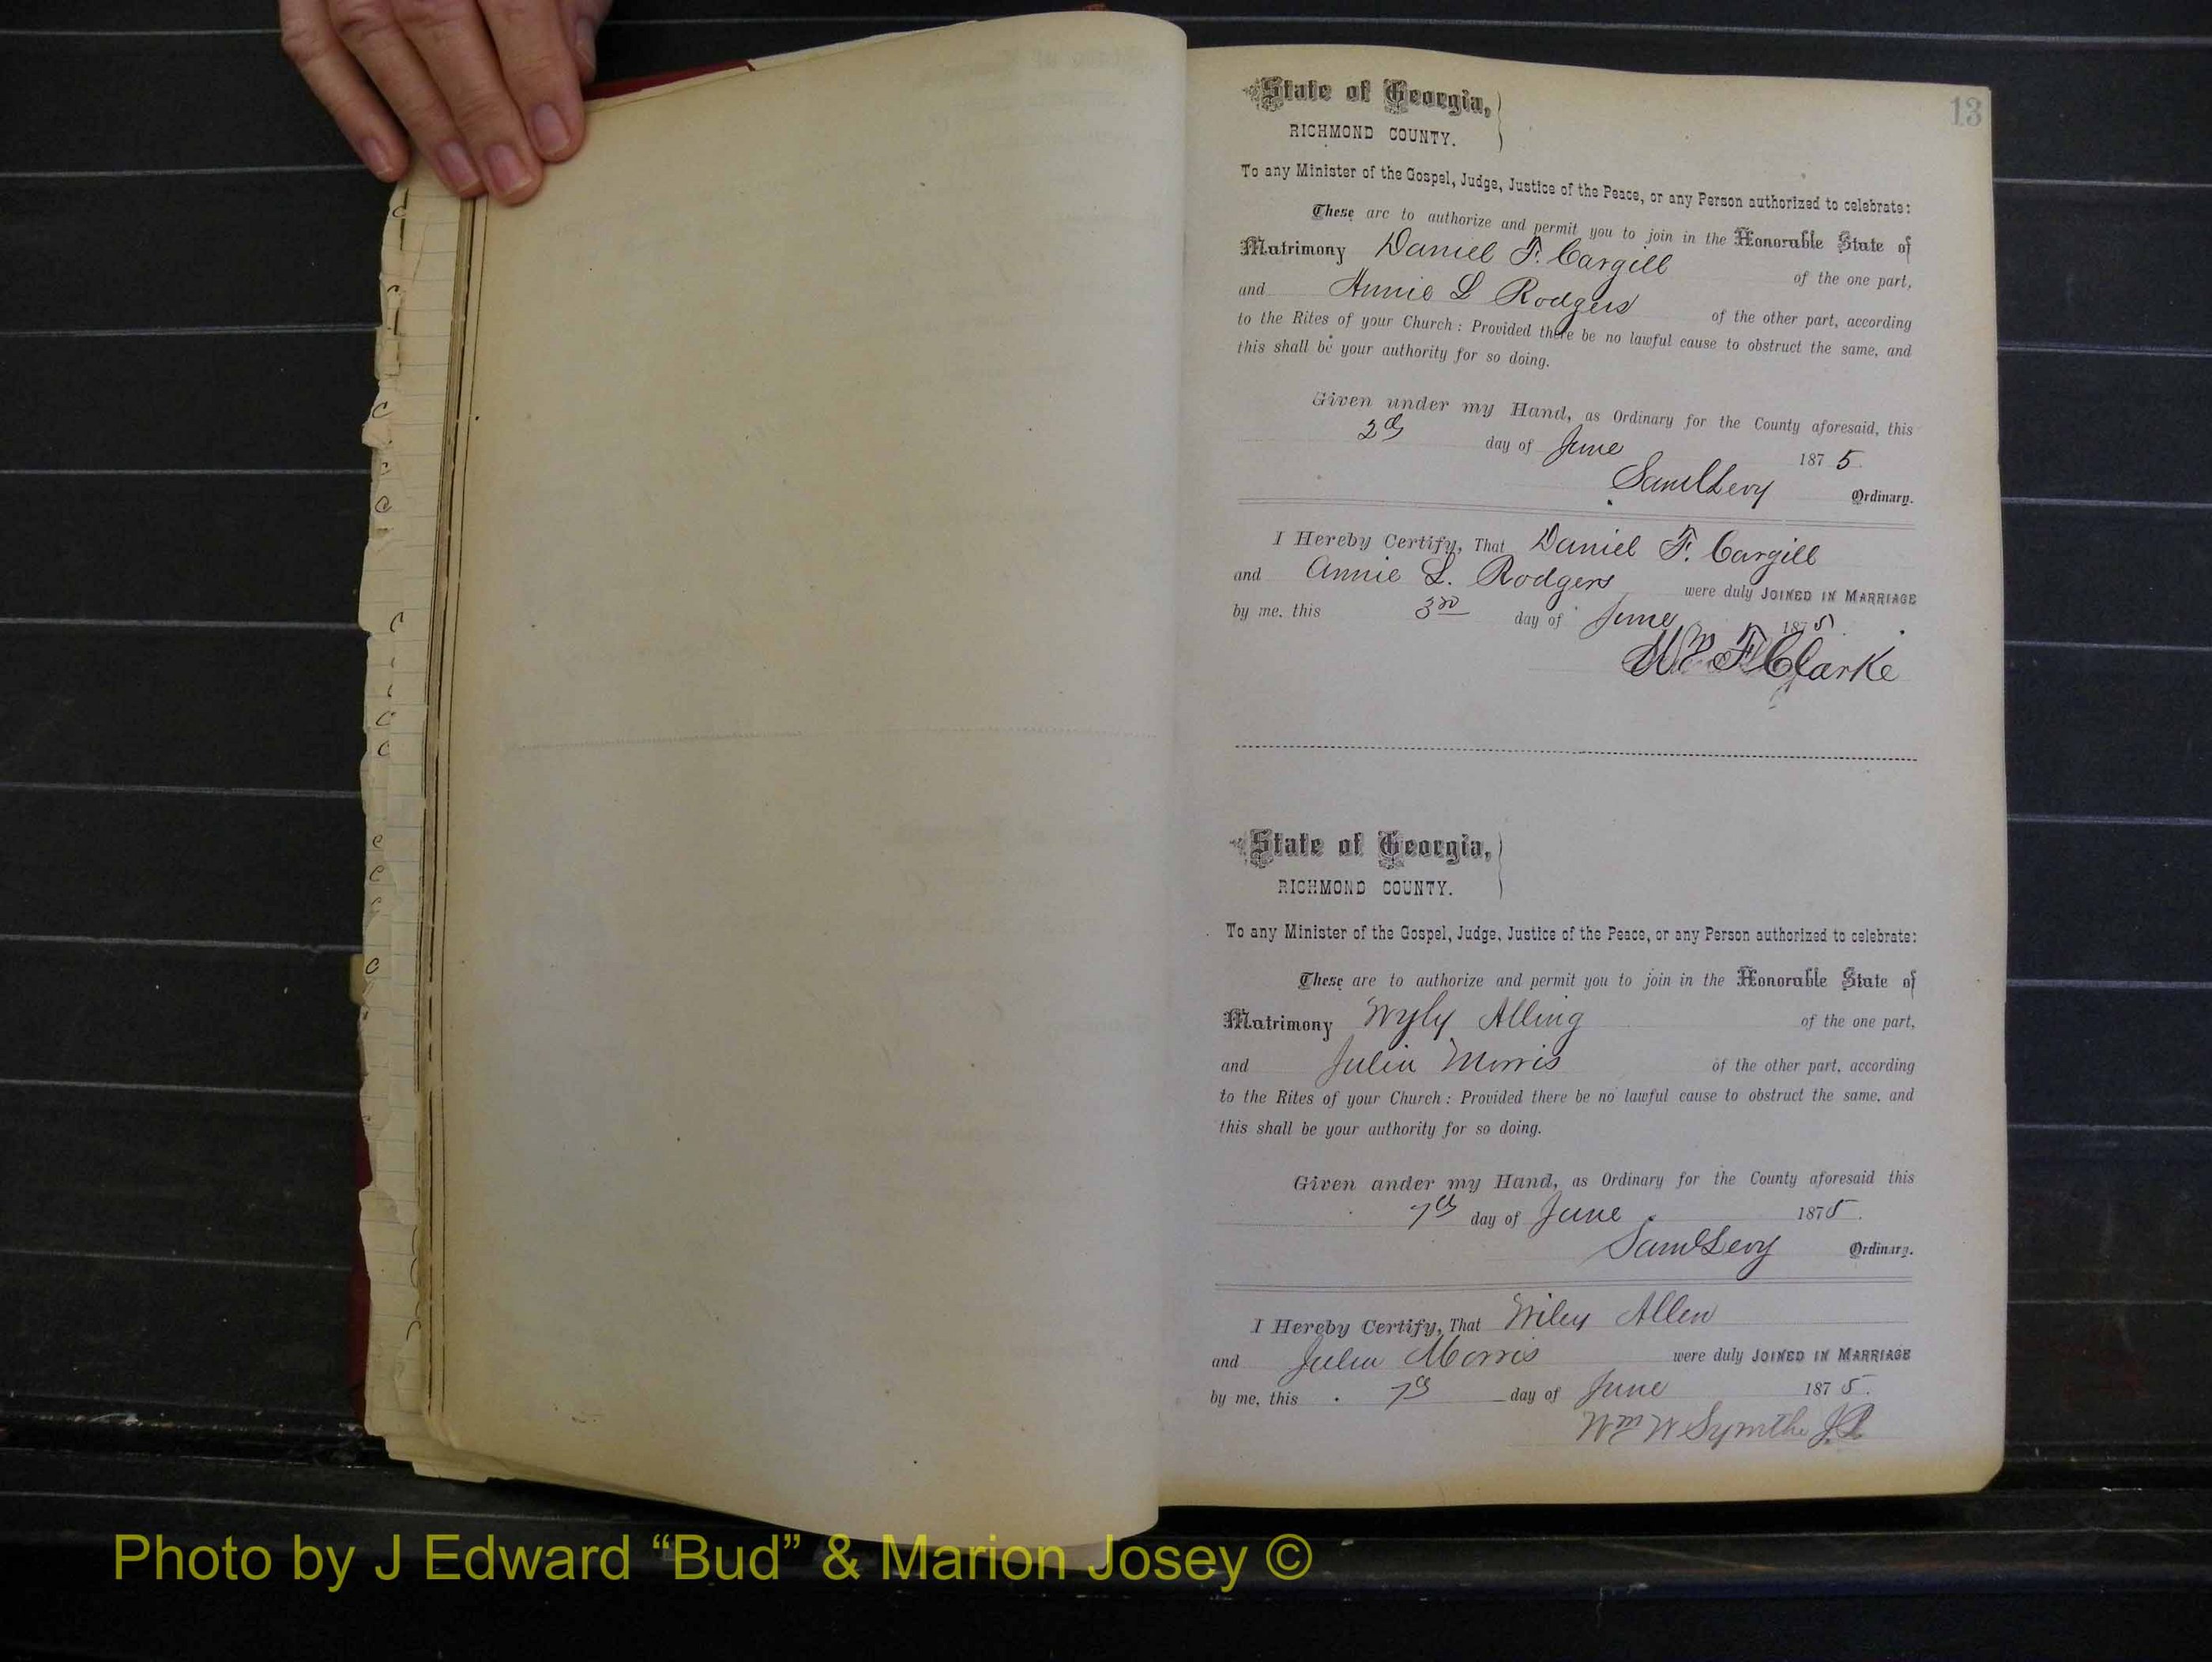 13
State of Georgia,
RICHMOND COUNTY.
To any Minister of the Gospel, Judge, Justice of the Peace, or any Person authorized to celebrate:
These are to authorize and permit you to join in the Honorable State of
Matrimony Daniel F. Cargill of the one part,
and Annie L Rodgers of the other part, according
to the Rites of your Church: Provided there be no lawful cause to obstruct the same, and
this shall be your authority for so doing.
Given under my Hand, as Ordinary for the County aforesaid, this
day of June 1875.
Saml Levy Ordinary.
I Hereby Certify, That Daniel F. Cargill
and Annie L. Rodgers were duly JOINED IN MARRIAGE
by me, this 3rd day of June 1875
Wm F Clarke
State of Georgia,
RICHMOND COUNTY.
To any Minister of the Gospel, Judge, Justice of the Peace, or any Person authorized to celebrate:
These are to authorize and permit you to join in the Honorable State of
Matrimony Wyly Alling of the one part,
and Julia Morris of the other part, according
to the Rites of your Church: Provided there be no lawful cause to obstruct the same, and
this shall be your authority for so doing.
Given under my Hand, as Ordinary for the County aforesaid this
7th day of June 1875.
Saml Levy Ordinary.
I Hereby Certify, That Wiley Allen
and Julia Morris were duly JOINED IN MARRIAGE
by me, this 7th day of June 1875.
Wm W Symthe J.P.
Photo by J Edward “Bud” & Marion Josey ©